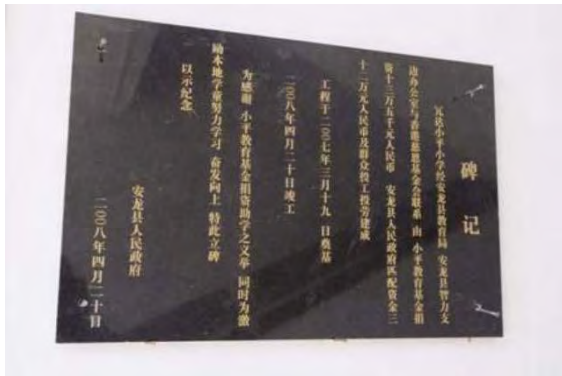 碑记
瓦达小平小学经安龙县教育局 安龙县智力支
边办公室与香港慈恩基金会联系 由 小平教育基金捐
资十三万五千元人民币 安龙县人民政府匹配资金三
十二万元人民币及群众投工投劳建成
工程于二〇〇七年三月十九 日奠基
二〇〇八年四月二十日竣工
为感谢 小平教育基金捐资助学之义举 同时为激
励本地学童努力学习 奋发向上 特此立碑
以示纪念
安龙县人民政府
二〇〇八年四月二十日